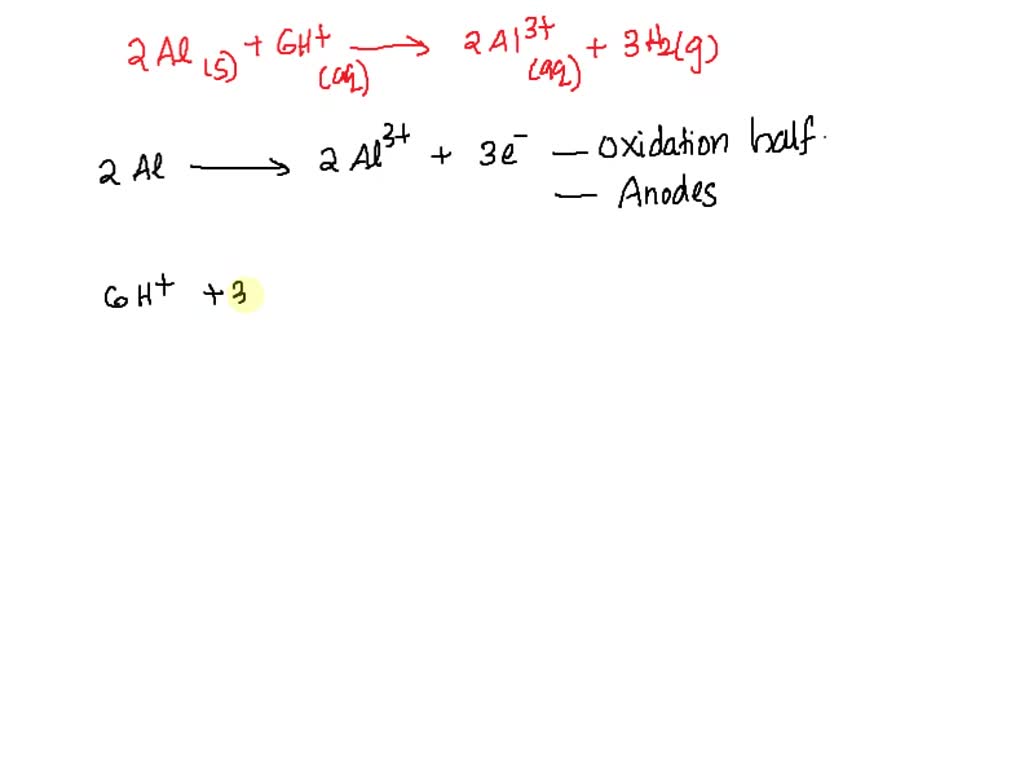 2 Al (s) + 6H⁺ (aq) ⟶ 2 Al³⁺ (aq) + 3H₂(g)
2 Al ⟶ 2 Al³⁺ + 3e⁻ — oxidation half.
— Anodes
6H⁺ + 3